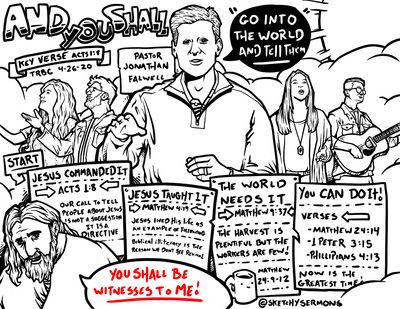 AND YOU SHALL
KEY VERSE ACTS 1:8
TRBC 4-26-20
PASTOR
JONATHAN
FALWELL
"GO INTO"
"THE WORLD
AND TELL THEM
START
JESUS COMMANDED IT
ACTS 1:8
OUR CALL TO TELL
PEOPLE ABOUT JESUS
IS NOT A SUGGESTION
IT IS A
DIRECTIVE
JESUS TAUGHT IT
MATTHEW
JESUS LIVED HIS LIFE AS
AN EXAMPLE OF
Biblical illiteracy is the
REASON WE DON'T SEE REVIVAL
THE WORLD
NEEDS IT
MATTHEW 9:37
THE HARVEST IS
PLENTIFUL BUT THE
WORKERS ARE FEW!
MATTHEW
24:9-12
YOU CAN DO IT!
VERSES
-MATTHEW 24:14
-1 PETER 3:15
-PHILLIPIANS 4:13
NOW IS THE
GREATEST TIME!
YOU SHALL BE
WITNESSES TO ME!
@SKETCHYSERMONS